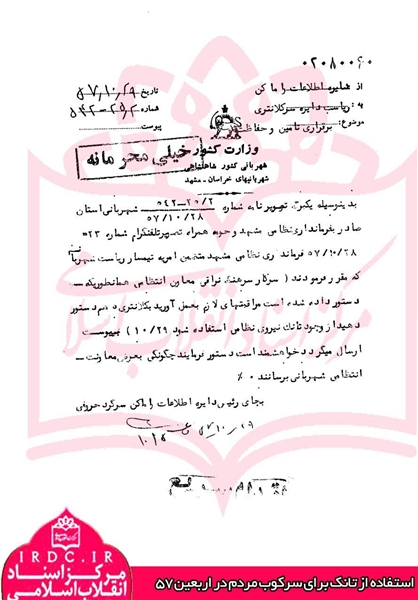 ۰۲۰۸۰۰۶۰
از دایره اطلاعات و اماکن
به: ریاست دایره سرکلانتری
موضوع: برقراری تامین و حفاظت
تاریخ ۵۷/۱۰/۲۹
شماره ۵۴۲-۲۵/۲
پیوست
وزارت کشور
خیلی محرمانه
شهربانی کشور شاهنشاهی
شهربانیهای خراسان - مشهد
بدینوسیله یکبرگ تصویر نامه شماره ۵۴۲-۲۵/۲
۵۷/۱۰/۲۸ شهربانی استان
صادر بفرمانداری نظامی مشهد و حومه همراه تصویر تلفنگرام شماره ۲۳-
۵۷/۱۰/۲۸ فرمانداری نظامی مشهد متضمن امریه تیمسار ریاست شهربانی
که مقرر فرمودند ( سرکار سرهنگ عراقی معاون انتظامی همانطوریکه -
دستور داده شده است مراقبتهای لازم بعمل آورید بکلانتری دهم دستور
دهید از وجود تانک نیروی نظامی استفاده شود ۱۰/۲۹ ) بپیوست
ارسال میگردد خواهشمند است دستور فرمایند چگونگی بعرض معاونت -
انتظامی شهربانی برسانند ٪
بجای رئیس دایره اطلاعات و اماکن سرگرد حروفی
۵۷/۱۰/۲۹
IRDC.IR
مرکز اسناد
انقلاب اسلامی
استفاده از تانک برای سرکوب مردم در اربعین ۵۷